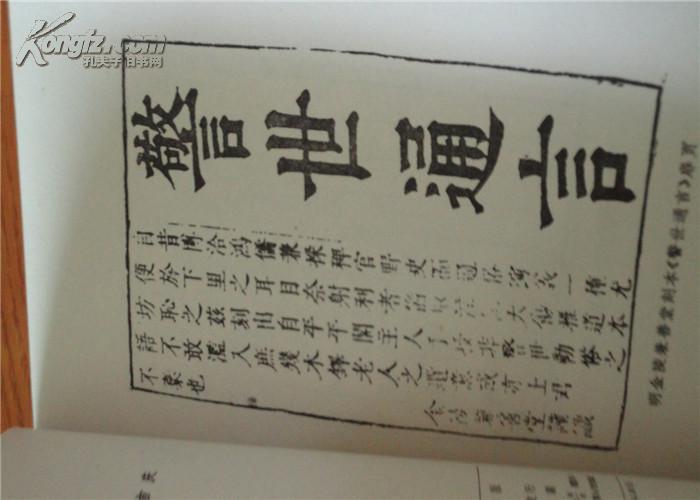 Kongfz.com
孔夫子旧书网
警世通言
自昔博洽鴻儒兼採稗官野史而通俗演義一種尤
便於下里之耳目奈射利者而取淫詞大傷雅道本
坊恥之茲刻出自平平閣主人手授非警世勸俗之
語不敢濫入庶幾木鐸老人之遺意或亦士君
不棄也
金陵兼善堂謹識
明金陵兼善堂刻本《警世通言》扉页